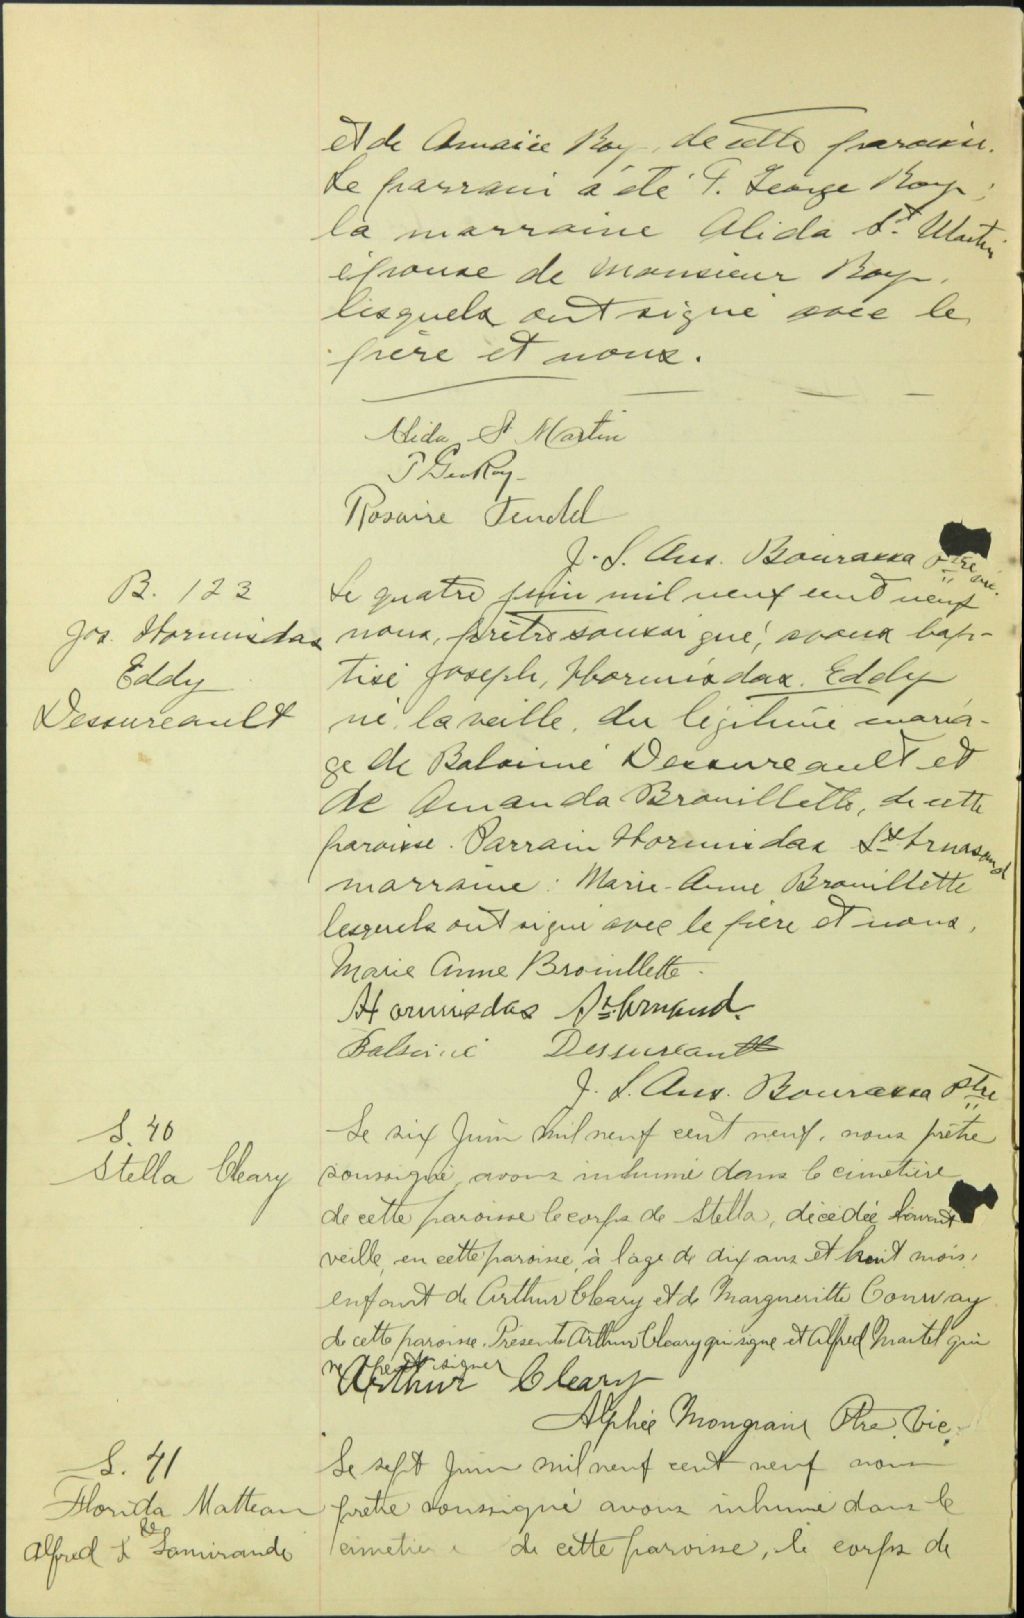 et de Amaïse Roy, de cette paroisse.
Le parrain a été P. George Roy;
la marraine Alida St. Martin
épouse de Monsieur Roy,
lesquels ont signé avec le
père et nous.
Alida St Martin
P Geo Roy
Rosaire
J. L. Aus. Bourassa ptre vic.
B. 123
Jos. Hormisdas
Eddy
Dessureault
Le quatre juin mil neuf cent neuf
nous, prêtre soussigné, avons bap-
tisé Joseph, Hormisdas, Eddy
né la veille, du légitime maria-
ge de Dessureault et
de Amanda Brouillette, de cette
paroisse. Parrain Hormisdas St. Arnaud
marraine: Marie-Anne Brouillette
lesquels ont signé avec le père et nous,
Marie Anne Brouillette
Hormisdas St. Arnaud.
Dessureault
J. L. Aus. Bourassa ptre
S. 40
Stella Cleary
Le six Juin mil neuf cent neuf, nous prêtre
soussigné, avons inhumé dans le cimetière
de cette paroisse le corps de Stella, décédée l'avant
veille, en cette paroisse, à l'age de dix ans et huit mois,
enfant de Arthur Cleary et de Margueritte Conway
de cette paroisse. Présents Arthur Cleary qui signe et Alfred Martel qui
ne peut signer
Arthur Cleary
Alphée Mongrain Ptre Vic.
S. 41
Florida Matteau
de
Alfred L Lamirande
Le sept Juin mil neuf cent neuf nous
prêtre soussigné avons inhumé dans le
cimetière de cette paroisse, le corps de